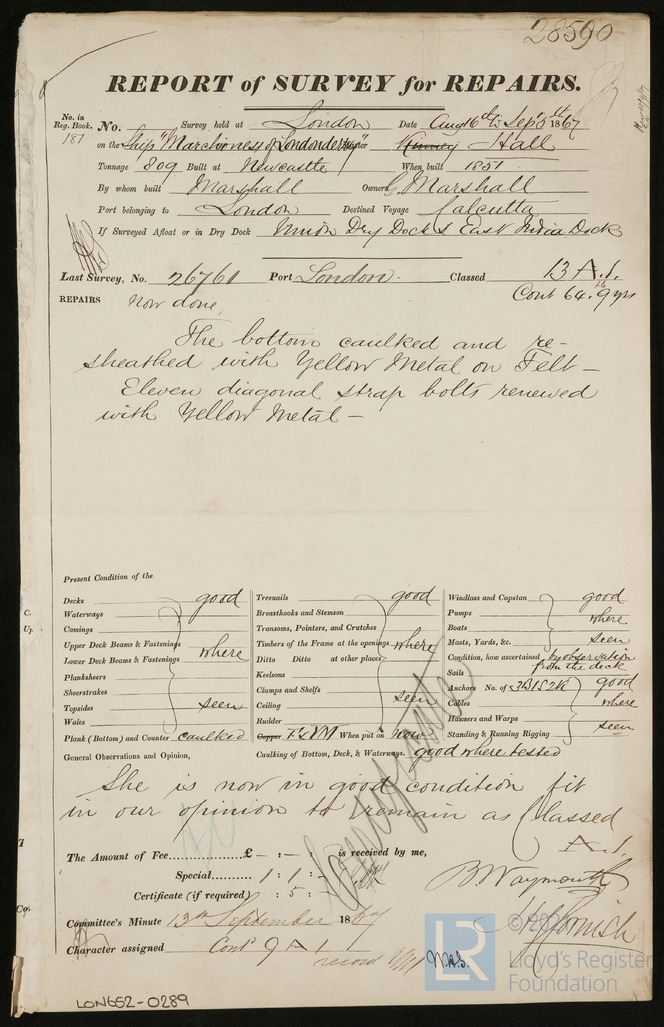 28590
REPORT of SURVEY for REPAIRS.
No. in Reg. Book. No. Survey held at London Date Aug 16th to Sept 5th 1867
181 on the Ship "Marchioness of Londonderry" Master Hall
Tonnage 809 Built at Newcastle When built 1851
By whom built Marshall Owners G Marshall
Port belonging to London Destined Voyage Calcutta
If Surveyed Afloat or in Dry Dock Union Dry Dock & East India Dock
Last Survey, No. 26761 Port London. Classed 13 A.1.
REPAIRS now done, Cont 64. 9 yrs
The bottom caulked and re-
sheathed with Yellow Metal on Felt—
Eleven diagonal strap bolts renewed
with Yellow Metal—
Present Condition of the
Decks good
Waterways
Comings
Upper Deck Beams & Fastenings where
Lower Deck Beams & Fastenings
Planksheers
Sheerstrakes
Topsides seen
Wales
Plank (Bottom) and Counter caulked
Treenails good
Breasthooks and Stemson
Transoms, Pointers, and Crutches
Timbers of the Frame at the openings where
Ditto Ditto at other places
Keelsons
Clamps and Shelfs
Ceiling seen
Rudder
Copper F & YM When put on now
Windlass and Capstan good
Pumps where
Boats
Masts, Yards, &c. seen
Condition, how ascertained by observation
from the deck
Sails
Anchors No. of 3B 1S 2K good
Cables where
Hausers and Warps
Standing & Running Rigging seen
General Observations and Opinion, Caulking of Bottom, Deck, & Waterways. good where tested
She is now in good condition fit
in our opinion to remain as Classed
A.1.
The Amount of Fee £ - : - : is received by me,
Special 1 : 1 :
Certificate (if required) : 5 :
B Waymouth
Committee's Minute 13th September 1867
Character assigned Contd 9 A 1
record YM
© 2021
LR
Lloyd's Register
Foundation
LON652-0289
C.
Up.
Co.